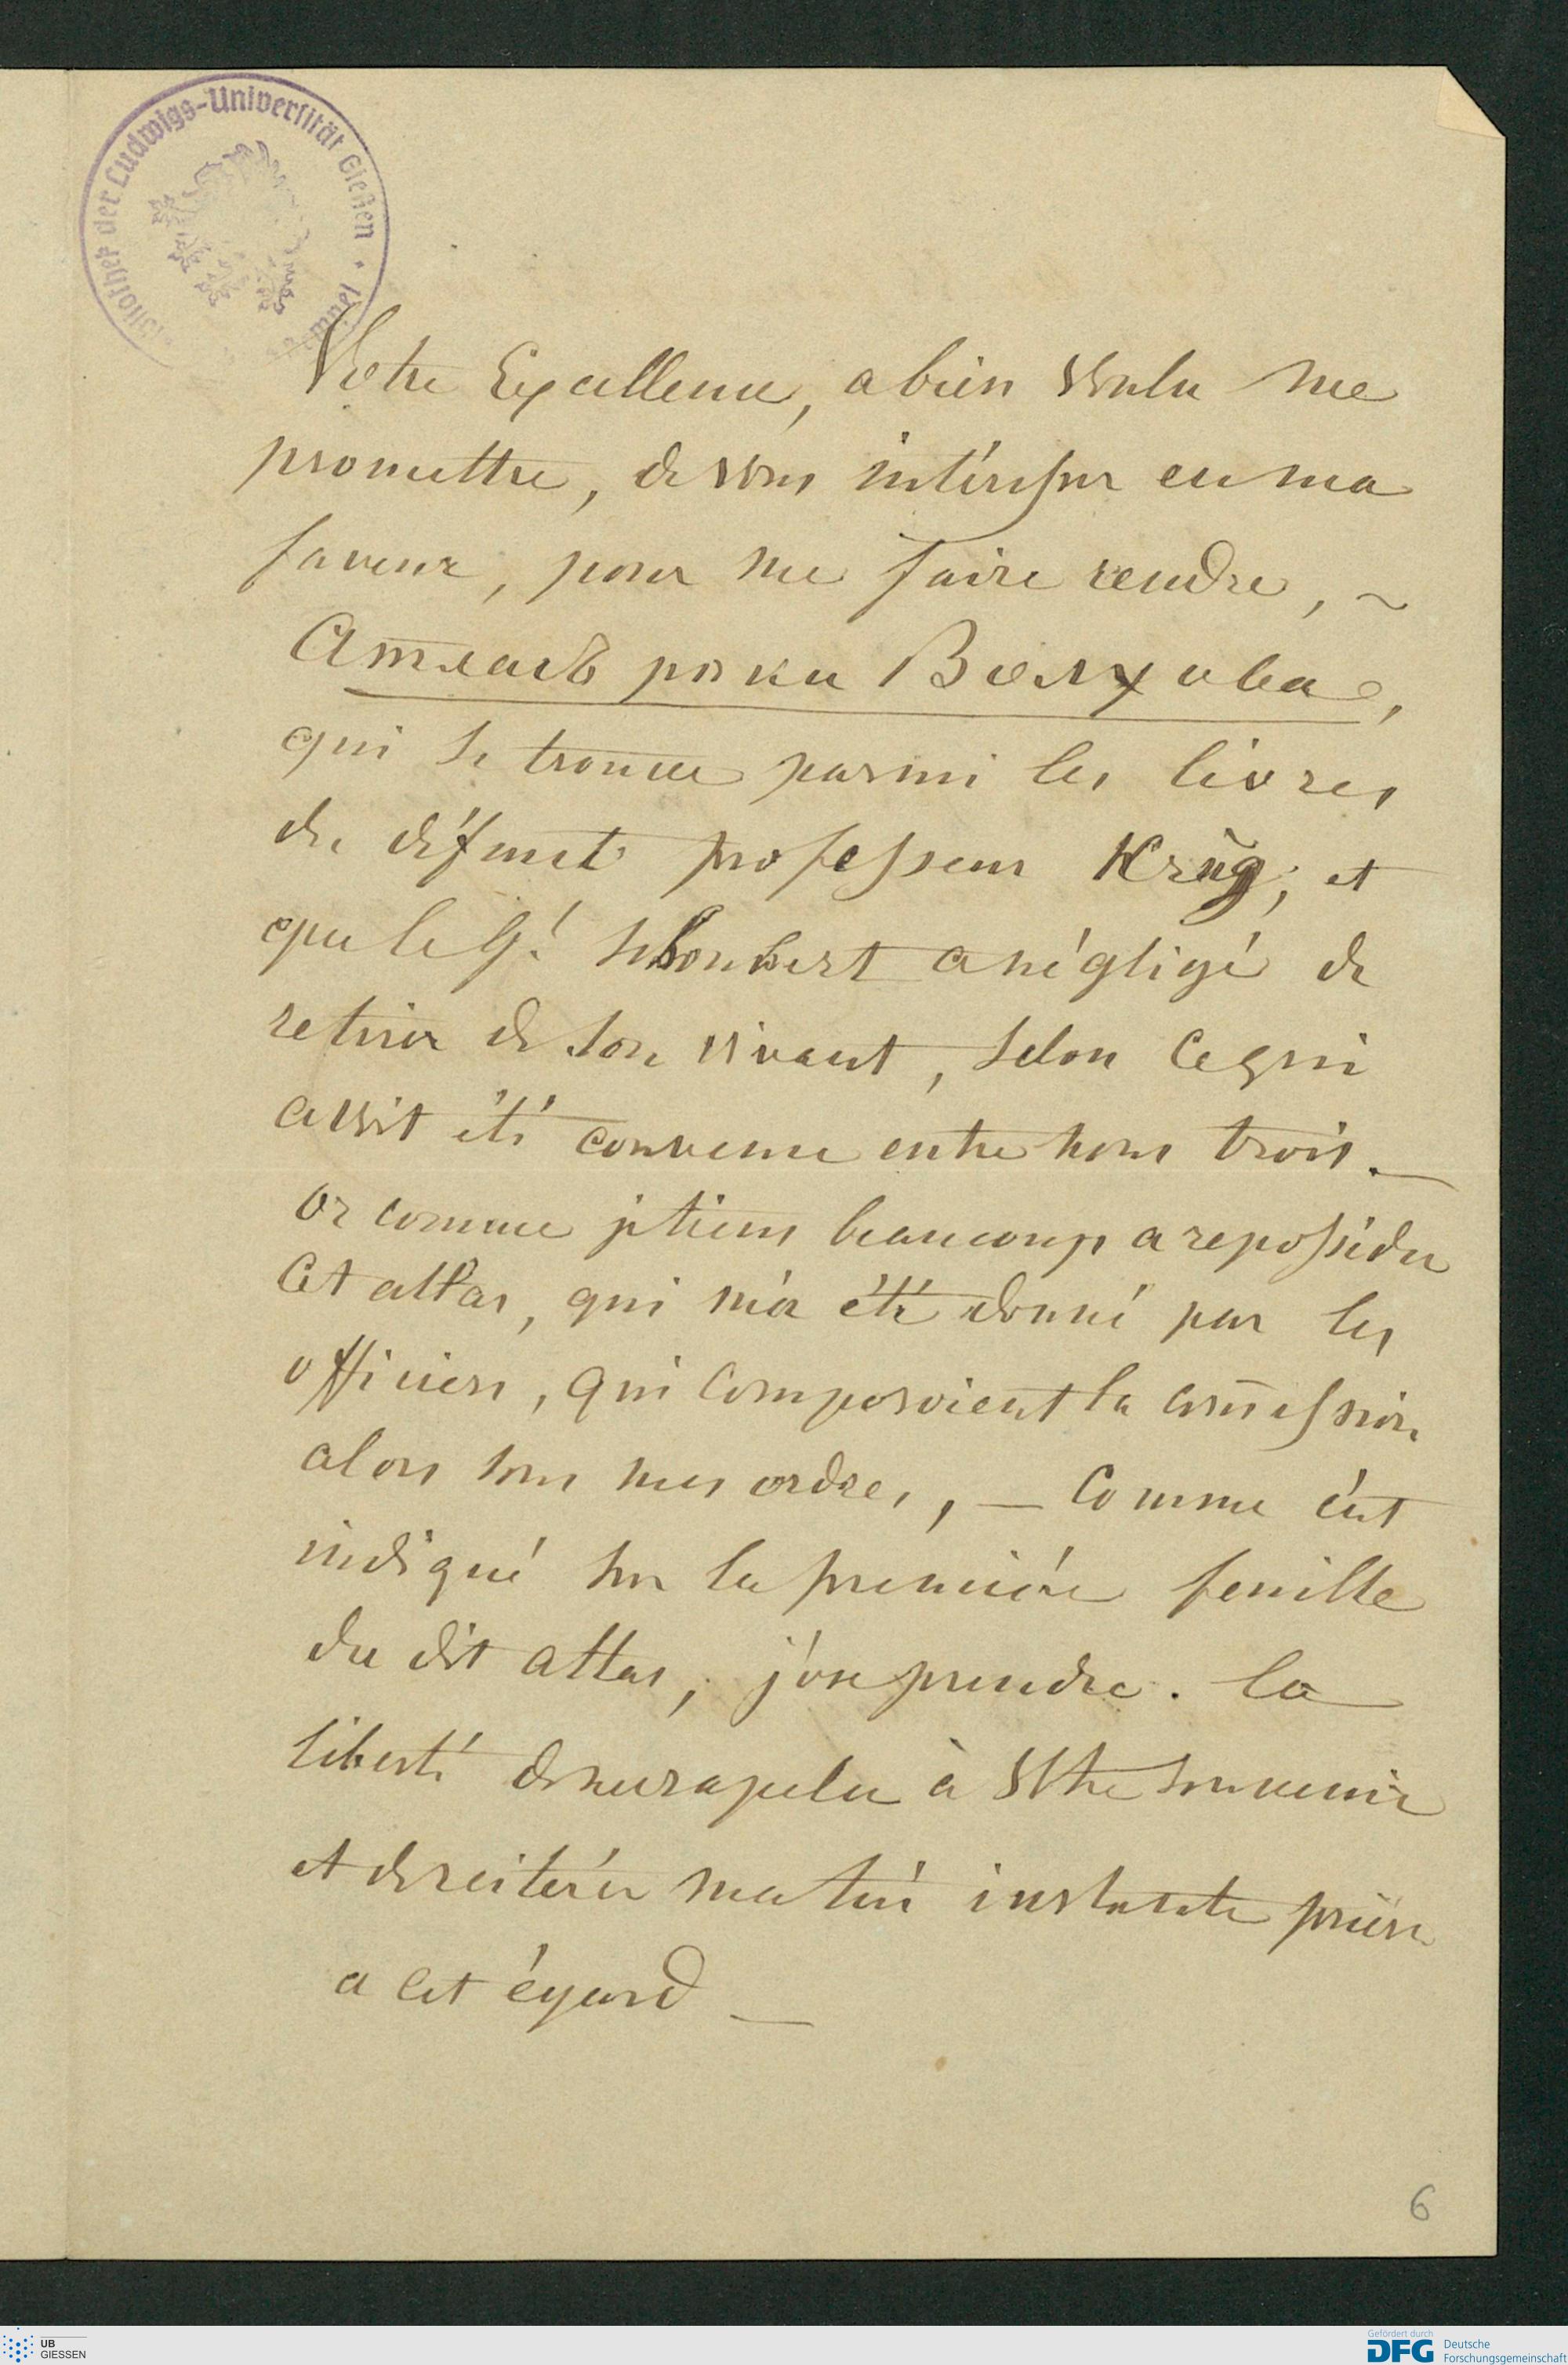 Bibliothek der Ludwigs-Universität Gießen
Votre Excellence, a bien voulu me
promettre, de vous intéresser en ma
faveur, pour me faire rendre, ~
Атласъ рѣки Волхова,
qui se trouve parmi les livres
du défunct professeur Krug; et
que le Gl. Schoubert a négligé de
retirer de son vivant, selon ce qui
avoit été convenu entre nous trois. —
Or comme je tiens beaucoup a reposséder
cet atlas, qui m'a été donné par les
officiers, qui composoient la com̄ession
alors sous mes ordres, — comme c'est
indiqué sur la première feuille
du dit atlas, j'ose prendre la
liberté de me rapeler à Votre souvenir
et de reitérér ma très instante prière
a cet égard —
6
UB
GIESSEN
Gefördert durch
DFG Deutsche
Forschungsgemeinschaft